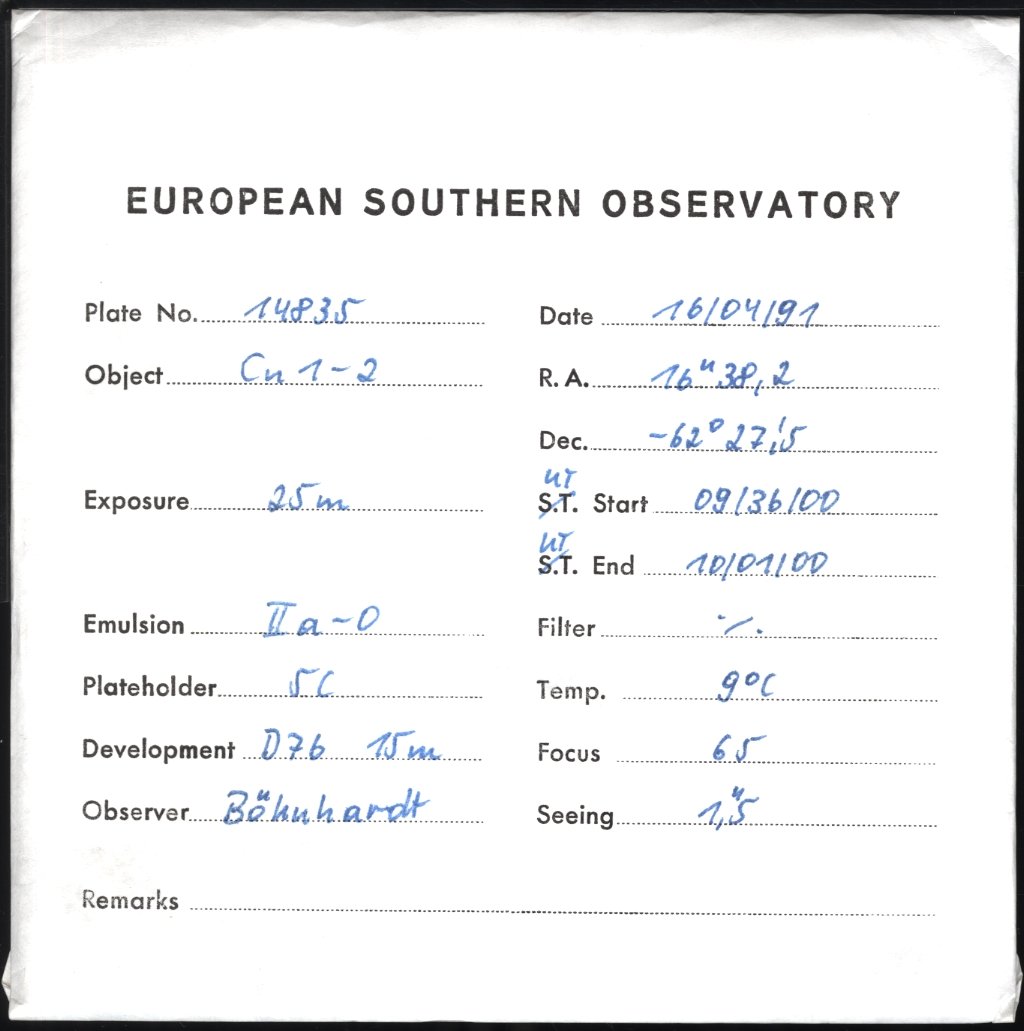 EUROPEAN SOUTHERN OBSERVATORY
Plate No. 14835 Date 16/04/91
Object Cn 1-2 R. A. 16ʰ 38,2
Dec. -62° 27,'5
UT
Exposure 25m S.T. Start 09/36/00
UT
S.T. End 10/01/00
Emulsion IIa-O Filter ·/.
Plateholder 5C Temp. 9°C
Development D76 15m Focus 65
Observer Böhnhardt Seeing 1,"5
Remarks